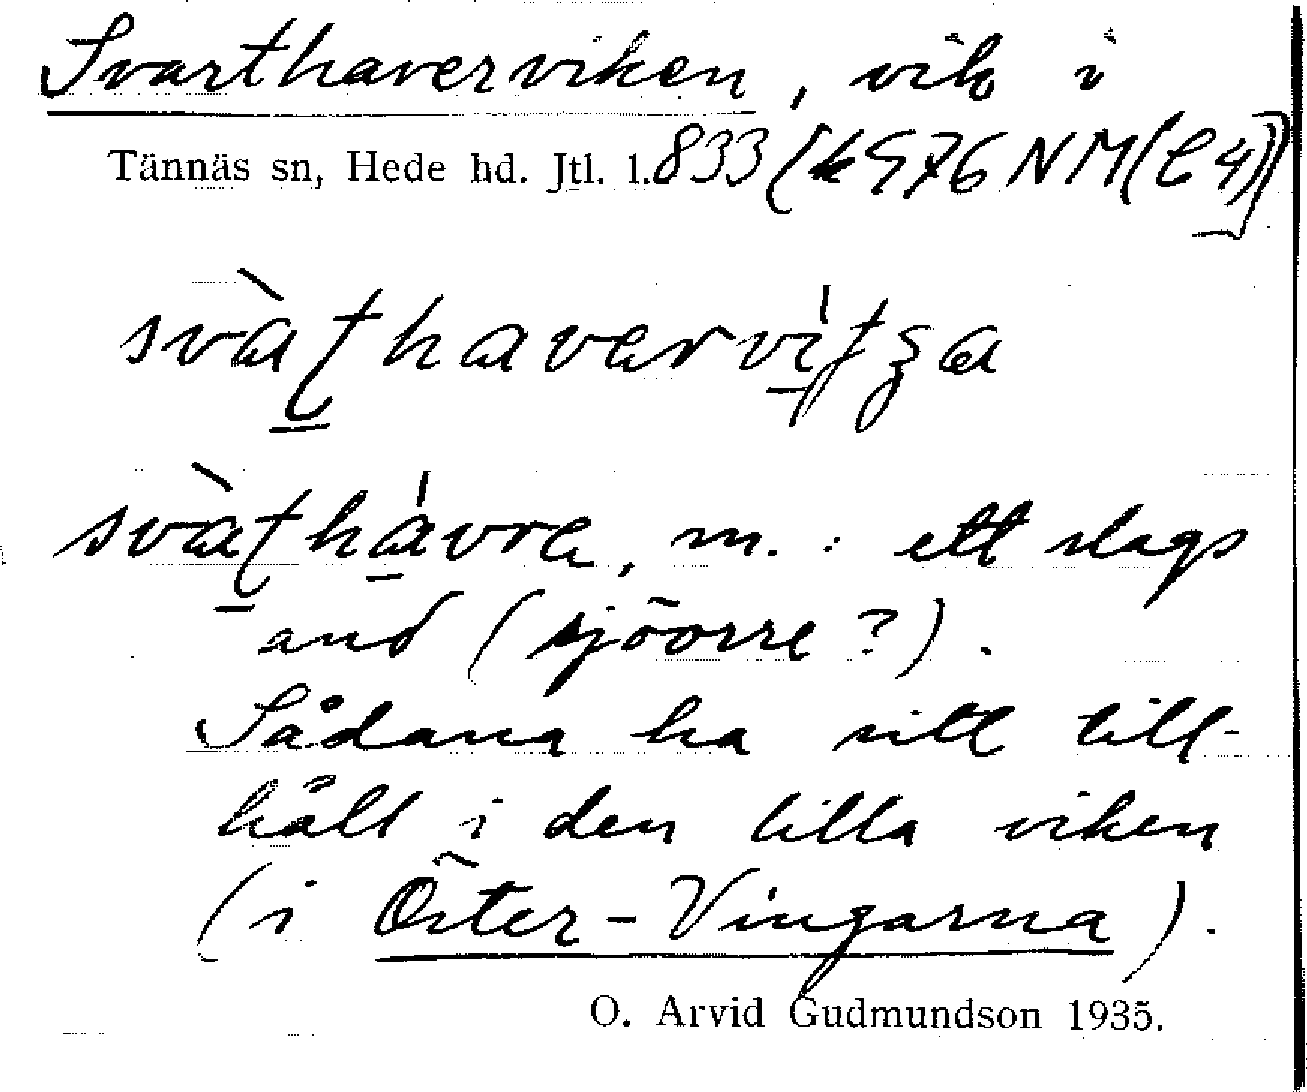 Svarthaverviken, vik i
Tännäs sn, Hede hd. Jtl. l. 833 (
svàthavarvitza
svàthávra, m. : ett slags
and (sjöorre?).
Sådana ha sitt till-
håll i den lilla viken
(i Öster-Vingarna).
O. Arvid Gudmundson 1935.